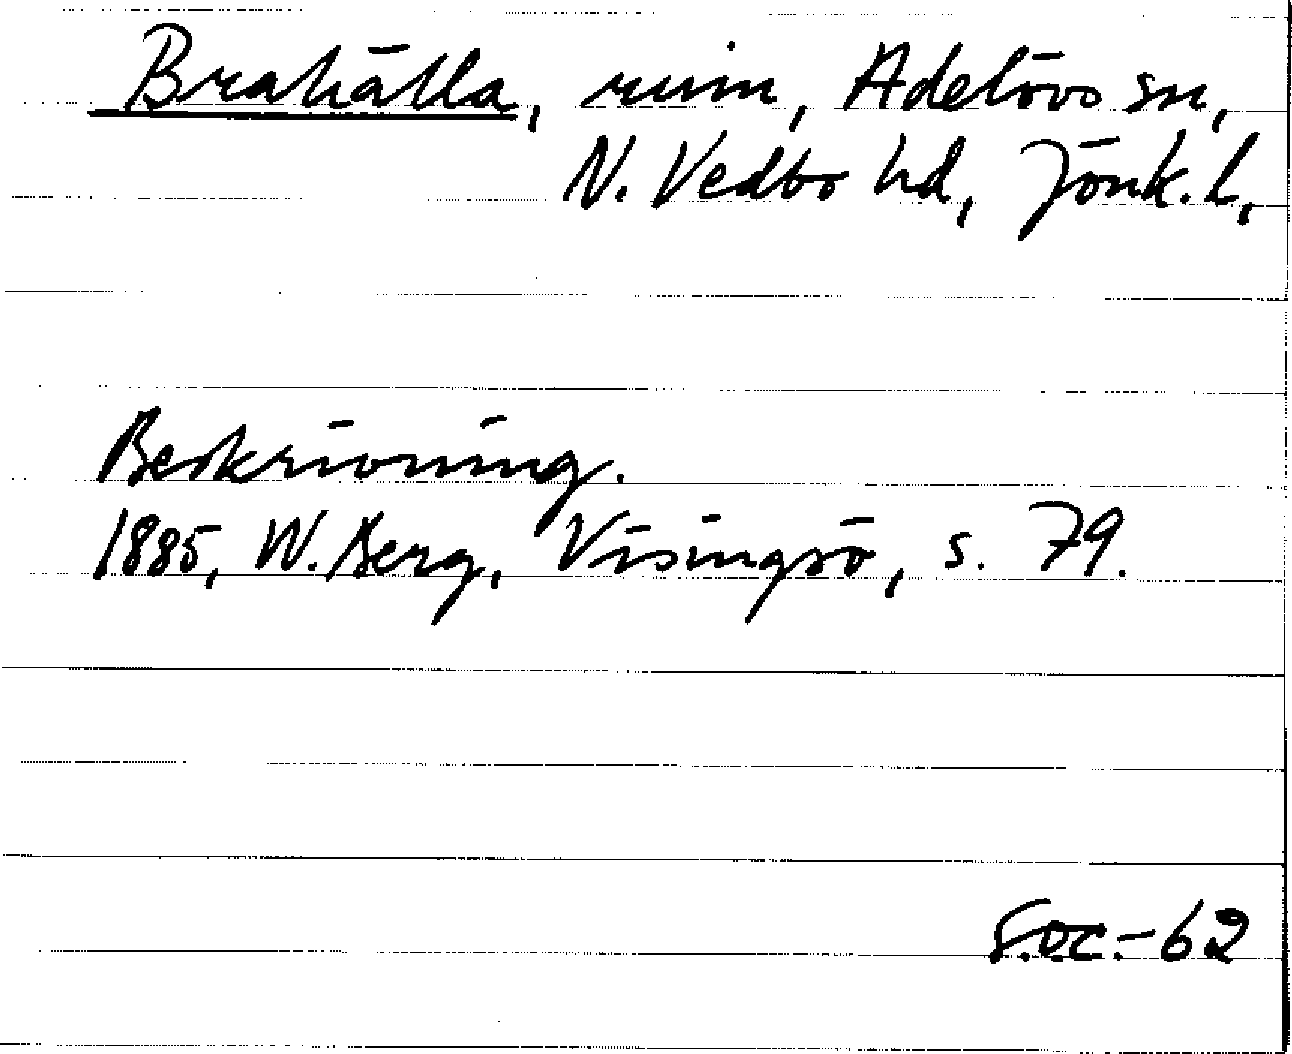 Brahälla, ruin, Adelövs sn,
N. Vedbo hd, Jönk. l,
Beskrivning.
1885, W. Berg, Visingsö, s. 79.
S.O.C.-62